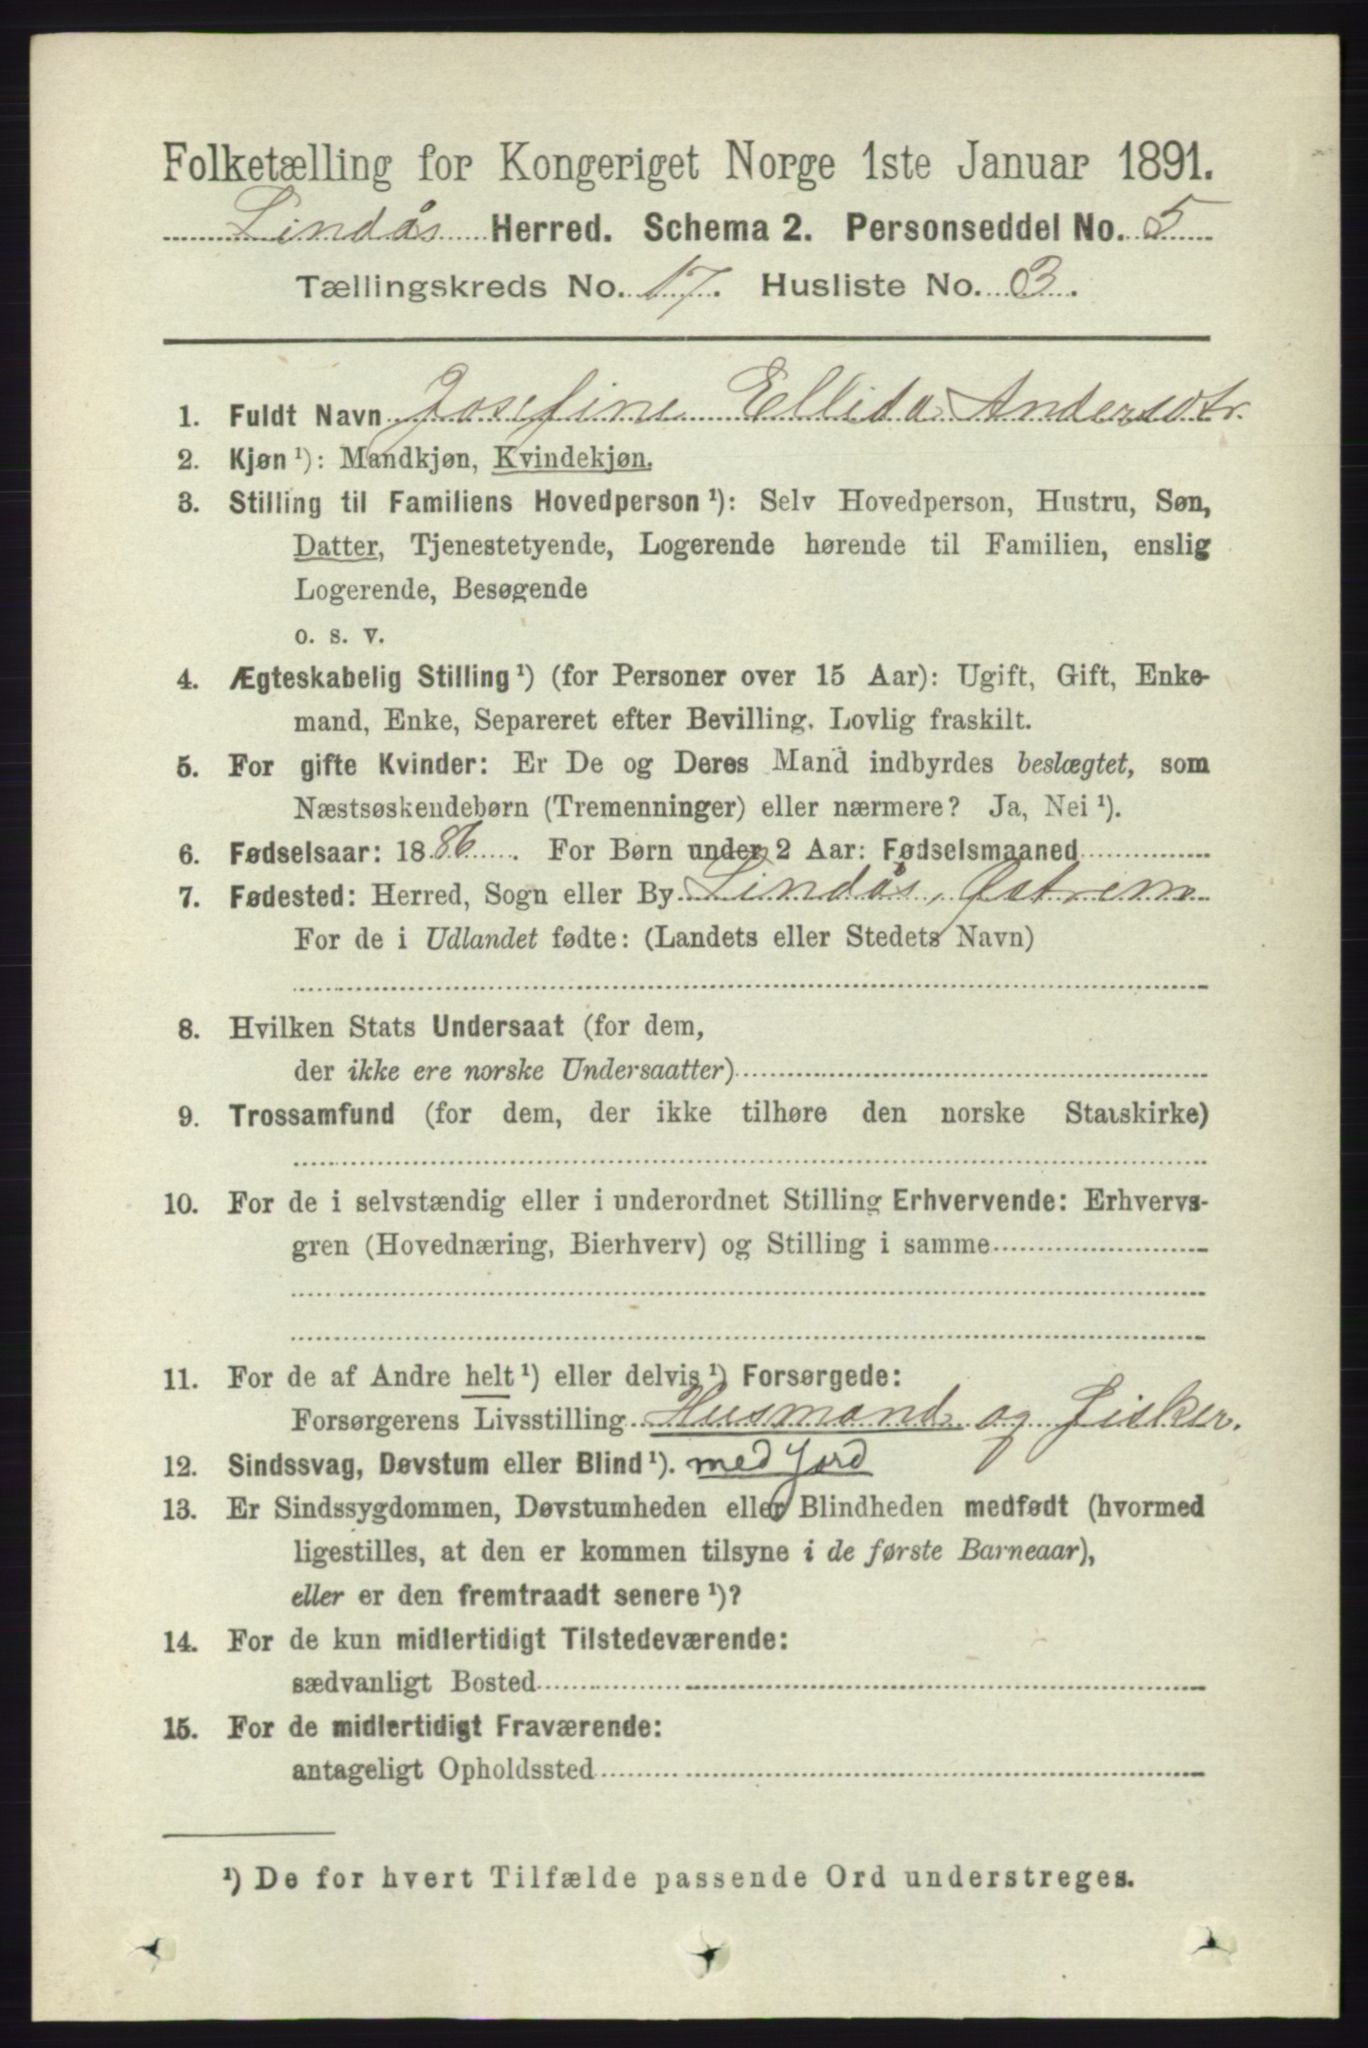 Folketælling for Kongeriget Norge 1ste Januar 1891.
Lindås Herred. Schema 2. Personseddel No. 5
Tællingskreds No. 17. Husliste No. 3.
1. Fuldt Navn Josefine Ellida Andersdtr.
2. Kjøn ¹): Mandkjøn, Kvindekjøn.
3. Stilling til Familiens Hovedperson ¹): Selv Hovedperson, Hustru, Søn,
Datter, Tjenestetyende, Logerende hørende til Familien, enslig
Logerende, Besøgende
o. s. v.
4. Ægteskabelig Stilling ¹) (for Personer over 15 Aar): Ugift, Gift, Enke-
mand, Enke, Separeret efter Bevilling. Lovlig fraskilt.
5. For gifte Kvinder: Er De og Deres Mand indbyrdes beslægtet, som
Næstsøskendebørn (Tremenninger) eller nærmere? Ja, Nei ¹).
6. Fødselsaar: 1886. For Børn under 2 Aar: Fødselsmaaned
7. Fødested: Herred, Sogn eller By Lindås, Østrem
For de i Udlandet fødte: (Landets eller Stedets Navn)
8. Hvilken Stats Undersaat (for dem,
der ikke ere norske Undersaatter)
9. Trossamfund (for dem, der ikke tilhøre den norske Statskirke)
10. For de i selvstændig eller i underordnet Stilling Erhvervende: Erhvervs-
gren (Hovednæring, Bierhverv) og Stilling i samme
11. For de af Andre helt ¹) eller delvis ¹) Forsørgede:
Forsørgerens Livsstilling Husmand og Fisker.
12. Sindssvag, Døvstum eller Blind ¹). med Jord
13. Er Sindssygdommen, Døvstumheden eller Blindheden medfødt (hvormed
ligestilles, at den er kommen tilsyne i de første Barneaar),
eller er den fremtraadt senere ¹)?
14. For de kun midlertidigt Tilstedeværende:
sædvanligt Bosted
15. For de midlertidigt Fraværende:
antageligt Opholdssted
¹) De for hvert Tilfælde passende Ord understreges.